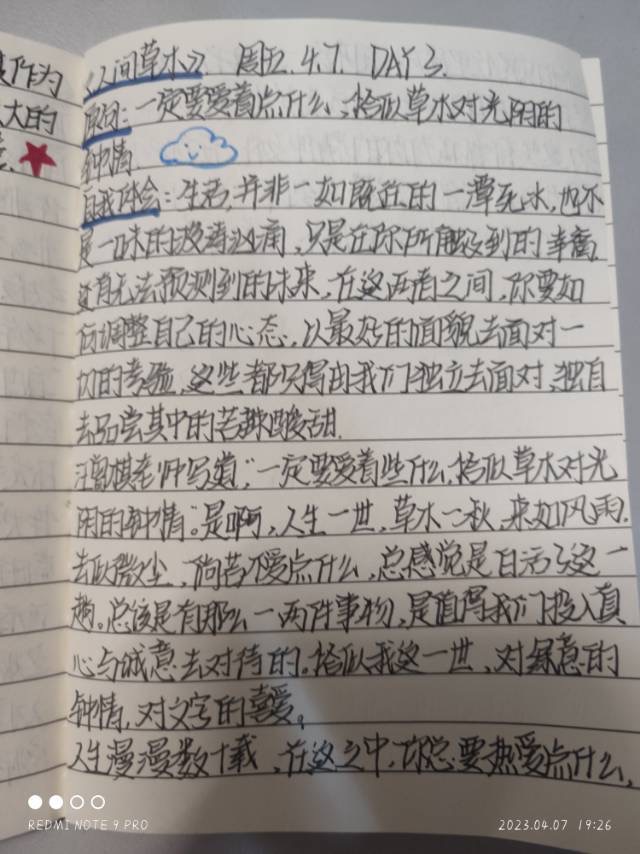 《人间草木》. 周五. 4.7. DAY 3.
原句:一定要爱着点什么,恰似草木对光阴的
钟情
自我体会:生活,并非一如既往的一潭死水,也不
是一味的 只是在你所触及到的幸福,
还有无法预测到的未来,在这两者之间,你要如
何调整自己的心态,以最好的面貌去面对一
切的考验,这些都只得由我们独立去面对,独自
去品尝其中的苦辣酸甜.
汪曾祺老师写道,"一定要爱着些什么,恰似草木对光
阴的钟情"。是啊,人生一世,草木一秋,来如风雨.
去似微尘,倘若不爱点什么,总感觉是白活了这一
趟。总该是有那么一两件事物,是值得我们投入真
心与诚意去对待的。恰似我这一世,对绿意的
钟情,对文字的喜爱。
人生漫漫数十载,在这之中,你总要热爱点什么,
作为
大的
REDMI NOTE 9 PRO
2023.04.07 19:26